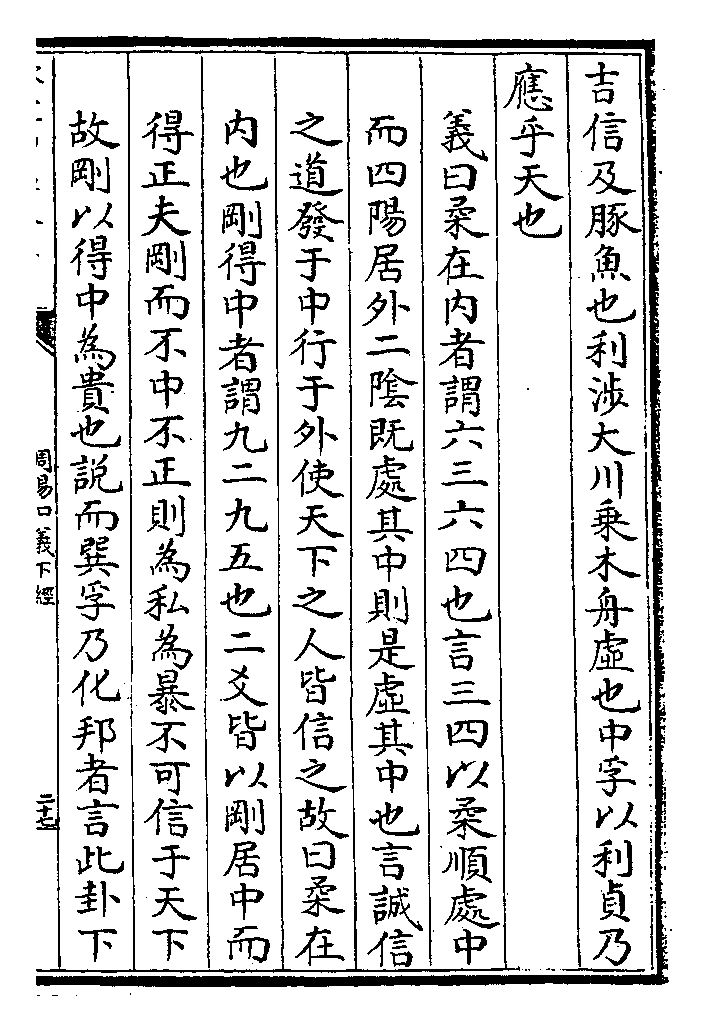 吉信及豚魚也利涉大川乗木舟虛也中孚以利貞乃
應乎天也
義曰柔在内者謂六三六四也言三四以柔順處中
而四陽居外二陰既處其中則是虛其中也言誠信
之道發于中行于外使天下之人皆信之故曰柔在
内也剛得中者謂九二九五也二爻皆以剛居中而
得正夫剛而不中不正則為私為暴不可信于天下
故剛以得中為貴也説而巽孚乃化邦者言此卦下
周易口義下經